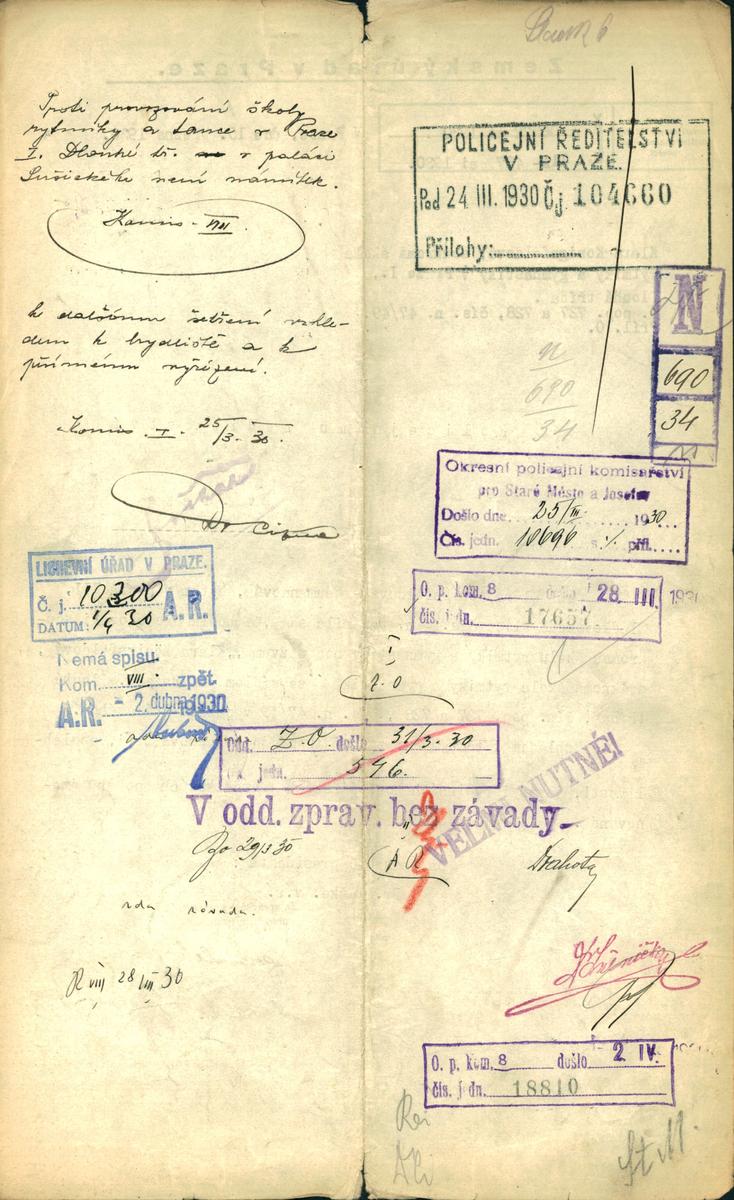 Proti provozování školy
rytmiky a tance v Praze
I. Dlouhá tř. v paláci
Sušického není námitek.
Komis. VIII
k dalšímu šetření vzhle-
dem k bydliště a k
přímému vyřízení.
Komis. I. 25/3. 30.
Dr
POLICEJNÍ ŘEDITELSTVÍ
V PRAZE.
Pod 24 III. 1930 Čj. 104660
Přílohy:
N
690
34
n
690
34
Okresní policejní komisařství
pro Staré Město a Josefov
Došlo dne 25/III. 1930
Čís. jedn. 10696 s. 1/. příl.
O. p. kom. 8 28. III. 193
čís. jedn. 17657
LICHEVNÍ ÚŘAD V PRAZE.
Č. j. 10300 A.R.
DATUM: 1/4 30
Nemá spisu.
Kom. VIII. zpět.
A.R. - 2. dubna 1930
I
Z.O
Odd. Z.O. došlo 31/3. 30
čís. jedn. 546.
VELMI NUTNÉ!
V odd. zpráv. bez závady.
29/3 30
A R
Drahota
závada.
R VIII 28/III 30
O. p. kom. 8 došlo 2. IV.
čís. jedn. 18810
St. M.